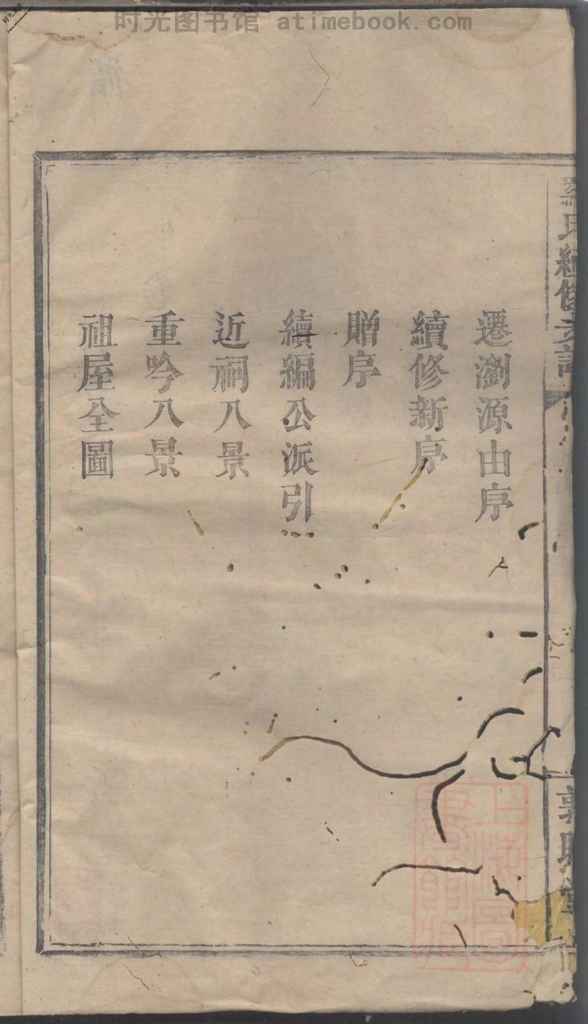 时光图书馆 atimebook.com
遷瀏源由序
續修新序
贈序
續編公派引
近祠八景
重吟八景
祖屋全圖